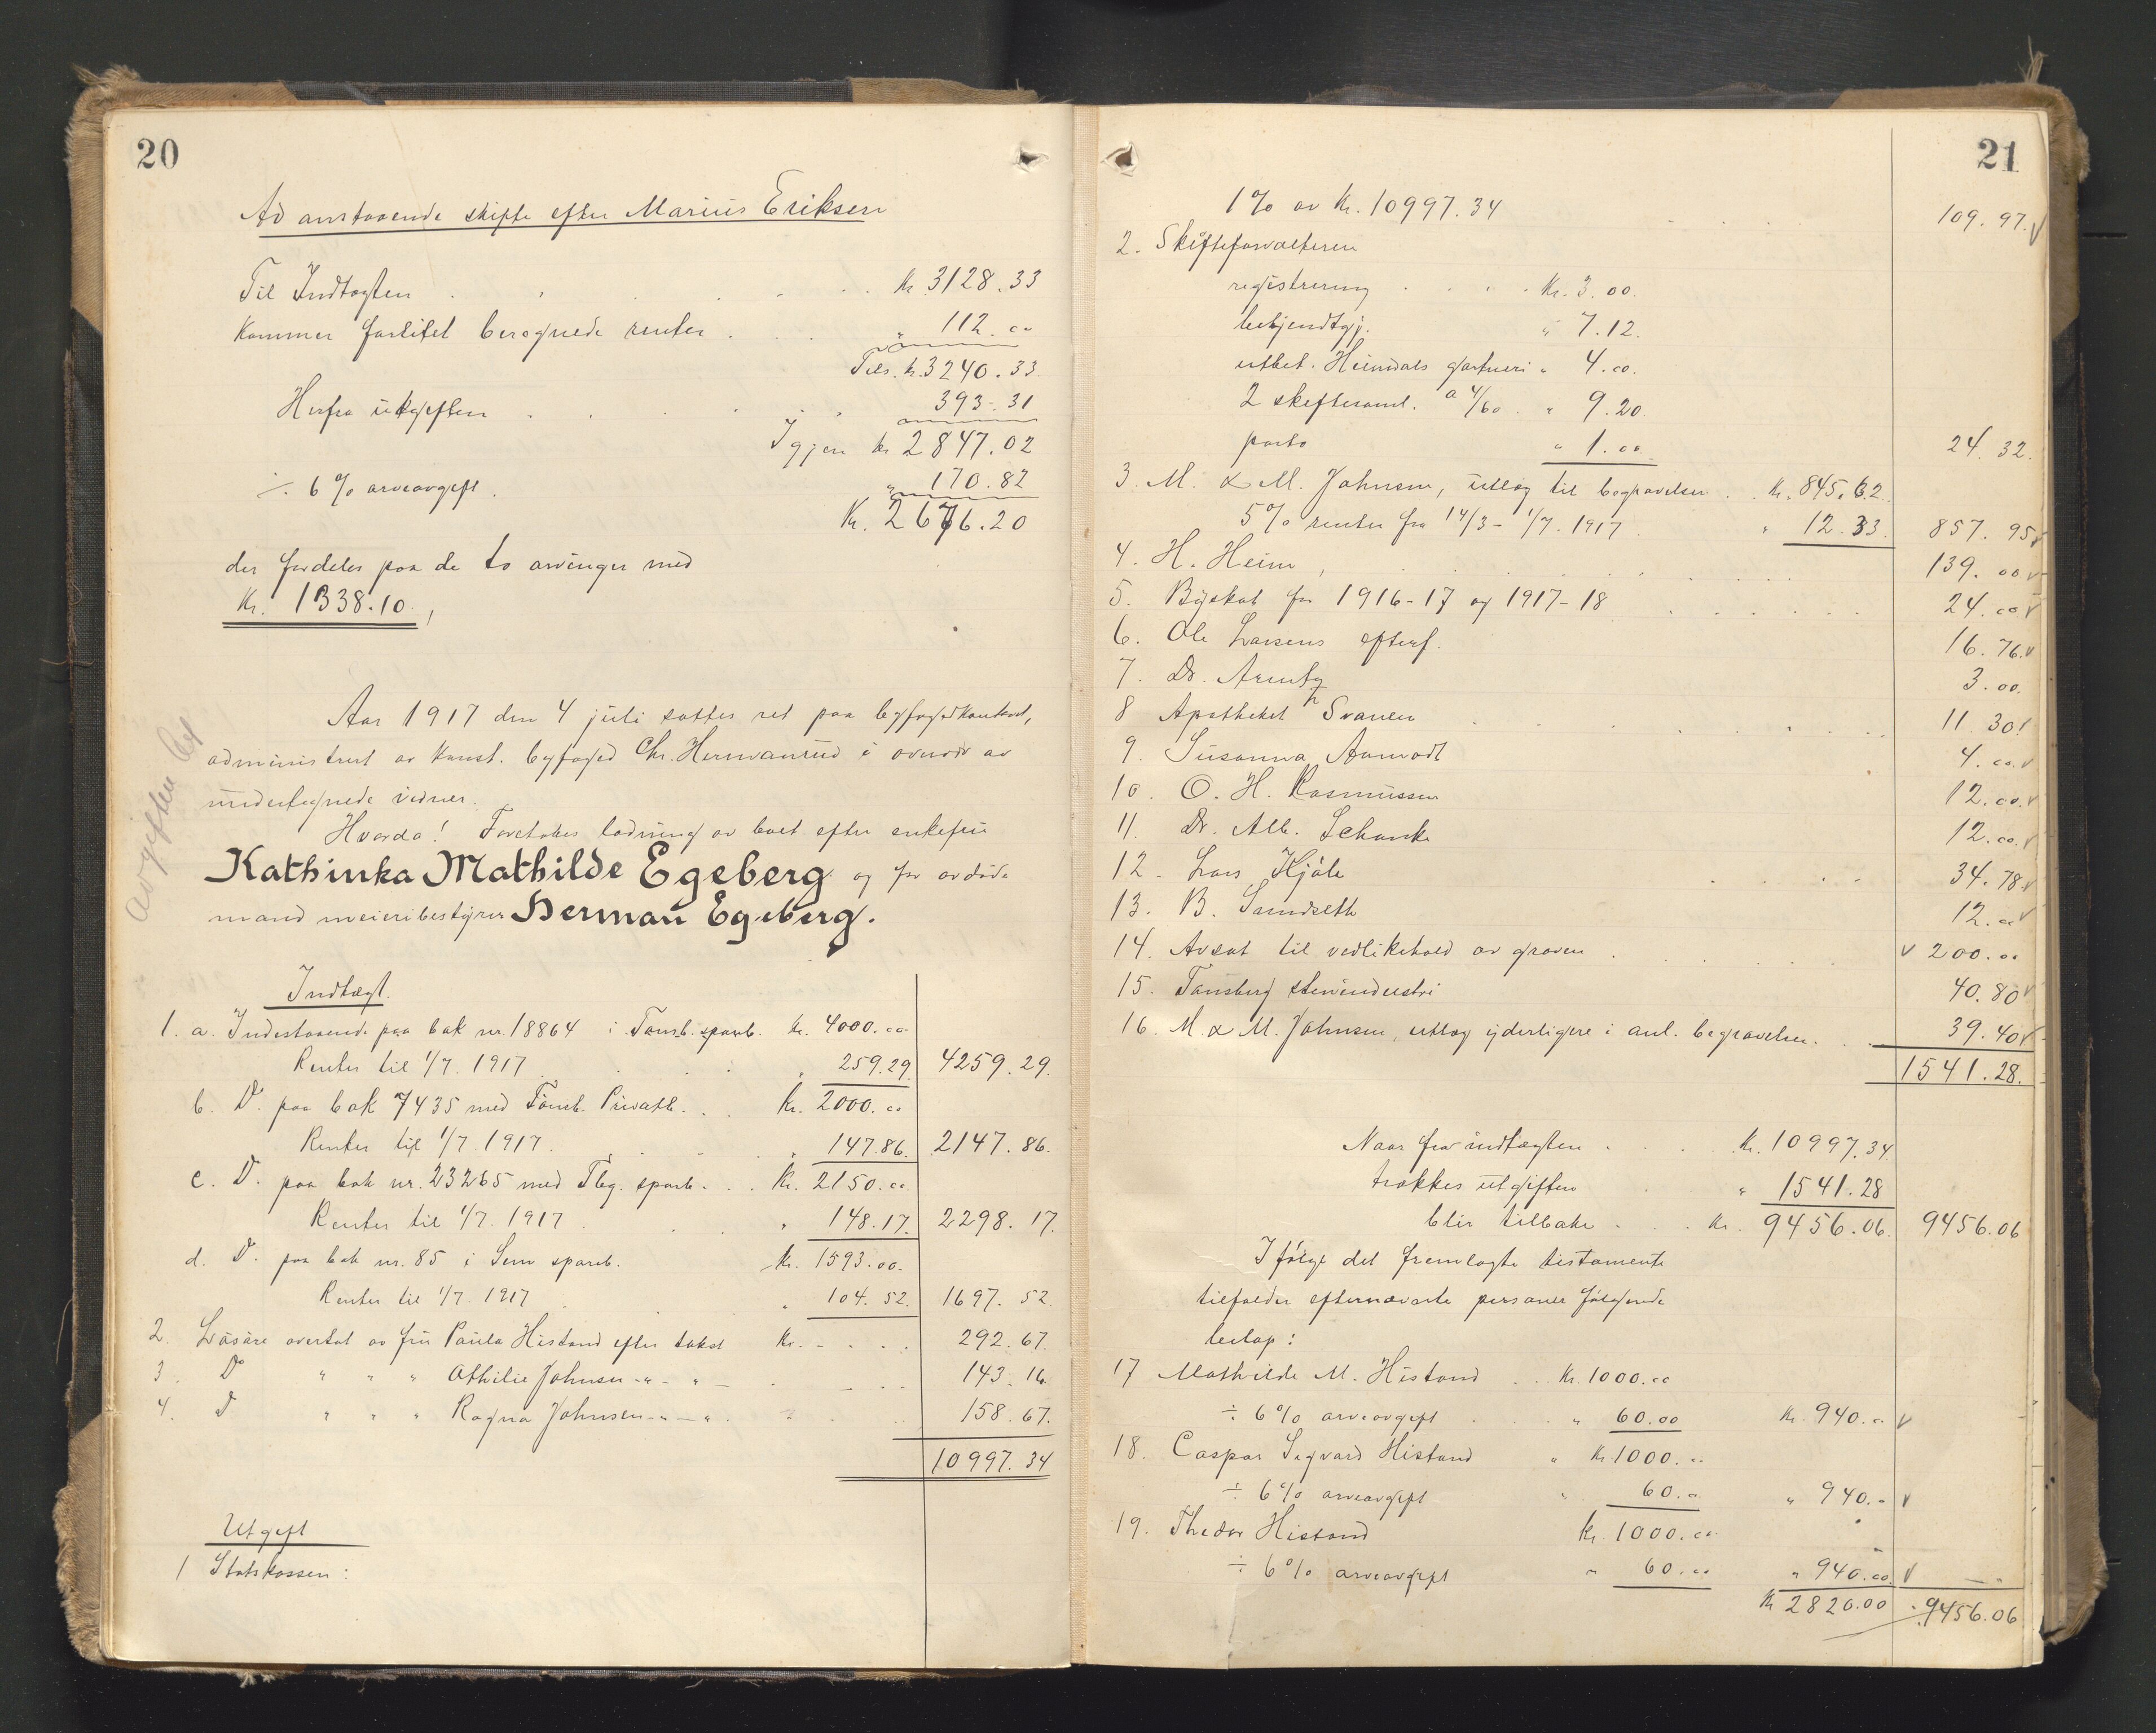 20
Ad anstaaende skifte efter Marius Eriksen
Til Indtægten . . . . . Kr. 3128.33
Kommer fortilet beregnede renter . . . " 112.00
Tils. kr. 3240.33
Herfra utgiften . . . . 393.31
Igjen kr 2847.02
÷ 6 % arveavgift . " 170.82
Kr. 2676.20
der fordeles paa de to arvinger med
Kr. 1338.10.
Aar 1917 den 4 juli sattes ret paa byfogedkontoret,
administrert av konst. byfoged Chr. Hermanrud i overvær av
undertegnede vidner.
Hvorda! Foretokes lodning av boet efter enkefru
Kathinka Mathilde Egeberg og før avdøde
mand meieribestyrer Herman Egeberg.
Avgiften bet
Indtægt.
1. a. Indestaaende paa bok nr. 18864 i Tønsb. sparb. Kr. 4000.00
Renter til 1/7. 1917 . . . " 259.29. 4259.29.
b. Do. paa bok 7435 med Tønsb. Privatb. . . Kr. 2000.00
Renter til 1/7. 1917. . . . " 147.86. 2147.86.
c. Do. paa bok nr. 23265 med Tbg. sparb. . . Kr. 2150.00
Renter til 1/7. 1917 . . " 148.17. 2298.17.
d. Do. paa bok nr. 85 i Sem spareb. Kr. 1593.00.
Renter til 1/7. 1917 " 104.52. 1697.52.
2. Løsøre overtat av fru Paula Histand efter takst Kr. - . . . 292.67.
3. Do " " " Othilie Johnsen -"- " - . . . . 143.16
4. Do " " " Ragna Johnsen -"-"- . . . . 158.67.
10997.34
Utgift
1 Statskassen:
21
1 % av Kr. 10997.34 109.97. √
2. Skifteforvalteren
registrering . . . . Kr. 3.00.
bekjendtgj. " 7.12.
utbet. Heimdals gartneri " 4.00.
2 skiftesaml. a 4/60 . " 9.20
porto " 1.00 24.32.
3. M. & M. Johnsen, utlæg til begravelsen . . Kr. 845.62.
5 % renter fra 14/3 - 1/7. 1917. " 12.33. 857.95 √
4. H. Heim, . . . . . . . . 139.00 √
5. Byskat for 1916-17 og 1917-18 . . . . . . 24.00 √
6. Ole Larsens efterf. 16.76. √
7. Dr. Arentz 3.00.
8 Apotheket Svanen . . . . . . 11.30 √
9. Susanna Aamodt 4.00. √
10. O. H. Rasmussen 12.00. √
11. Dr. Alb. Schanke 12.00. √
12 - Lars Kjøle . . . . 34.78 √
13. B. Sundseth 12.00 √
14. Avsat til vedlikehold av graven . . . . √ 200.00
15. Tønsberg stenindustri 40.80 √
16. M & M. Johnsen, utlæg yderligere i anl. begravelsen. . . 39.40 √
1541.28.
Naar fra indtægten . . . . Kr. 10997.34
trækkes utgiften . " 1541.28
blir tilbake . . . Kr. 9456.06. 9456.06
Ifølge det fremlagte testamente
tilfalder efternævnte personer følgende
beløp:
17 Mathilde M. Histand . . Kr. 1000.00
÷ 6 % arveavgift . . " 60.00 Kr. 940.00 √
18. Caspar Sigvard Histand " Kr. 1000.00
÷ 6 % arveavgift " 60.00 " 940.- √
19. Thedor Histand Kr. 1000.00
÷ 6 % arveavgift " 60.00 " 940.00 √ - "
Kr 2820.00 9456.06